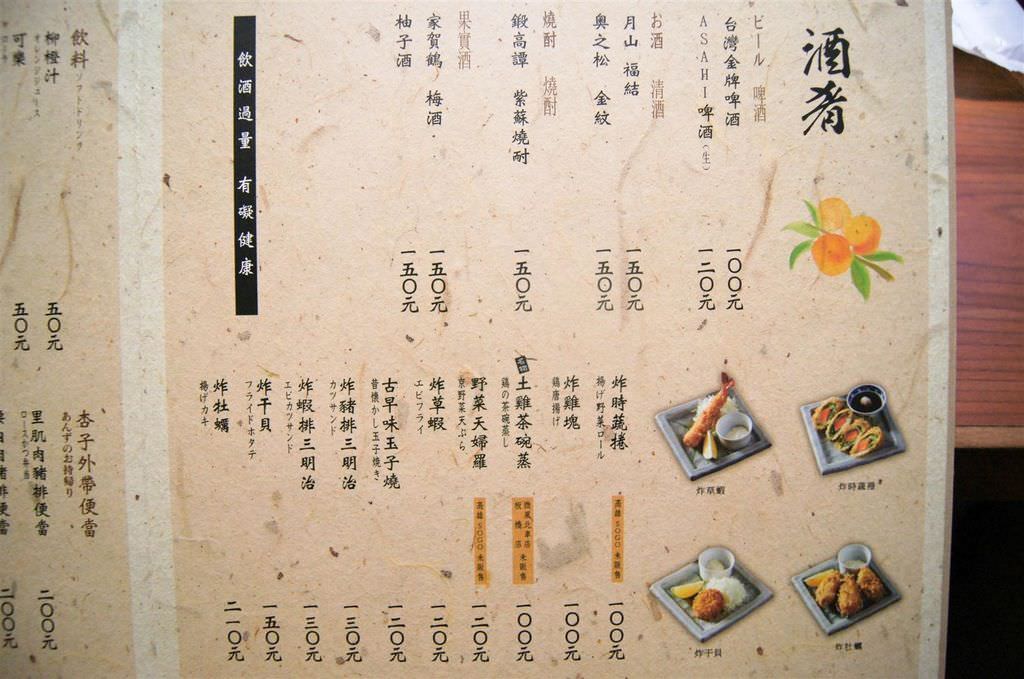 酒肴
ビール 啤酒
台灣金牌啤酒 一〇〇元
ASAHI啤酒(生) 一二〇元
お酒 清酒
月山 福結 一五〇元
奧之松 金紋 一五〇元
燒酎 燒酎
鍛高譚 紫蘇燒酎 一五〇元
果實酒
家賀鶴 梅酒 一五〇元
柚子酒 一五〇元
飲酒過量 有礙健康
炸時蔬捲 高雄SOGO未販售 一〇〇元
揚げ野菜ロール
炸雞塊 一〇〇元
鶏唐揚げ
名物 土雞茶碗蒸 微風北車店 板橋店 未販售 一〇〇元
鶏の茶碗蒸し
野菜天婦羅 高雄SOGO未販售 一二〇元
京野菜天ぷら
炸草蝦 一二〇元
エビフライ
古早味玉子燒 一二〇元
昔懐かし玉子焼き
炸豬排三明治 一三〇元
カツサンド
炸蝦排三明治 一三〇元
エビカツサンド
炸干貝 一五〇元
フライドホタテ
炸牡蠣 二一〇元
揚げカキ
炸草蝦
炸時蔬捲
炸干貝
炸牡蠣
飲料 ソフトドリンク
柳橙汁 五〇元
オレンジジュース
可樂 五〇元
コーラ
杏子外帶便當
あんずのお持帰り
里肌肉豬排便當 二〇〇元
ロースかつ弁当
豬排便當 二〇〇元